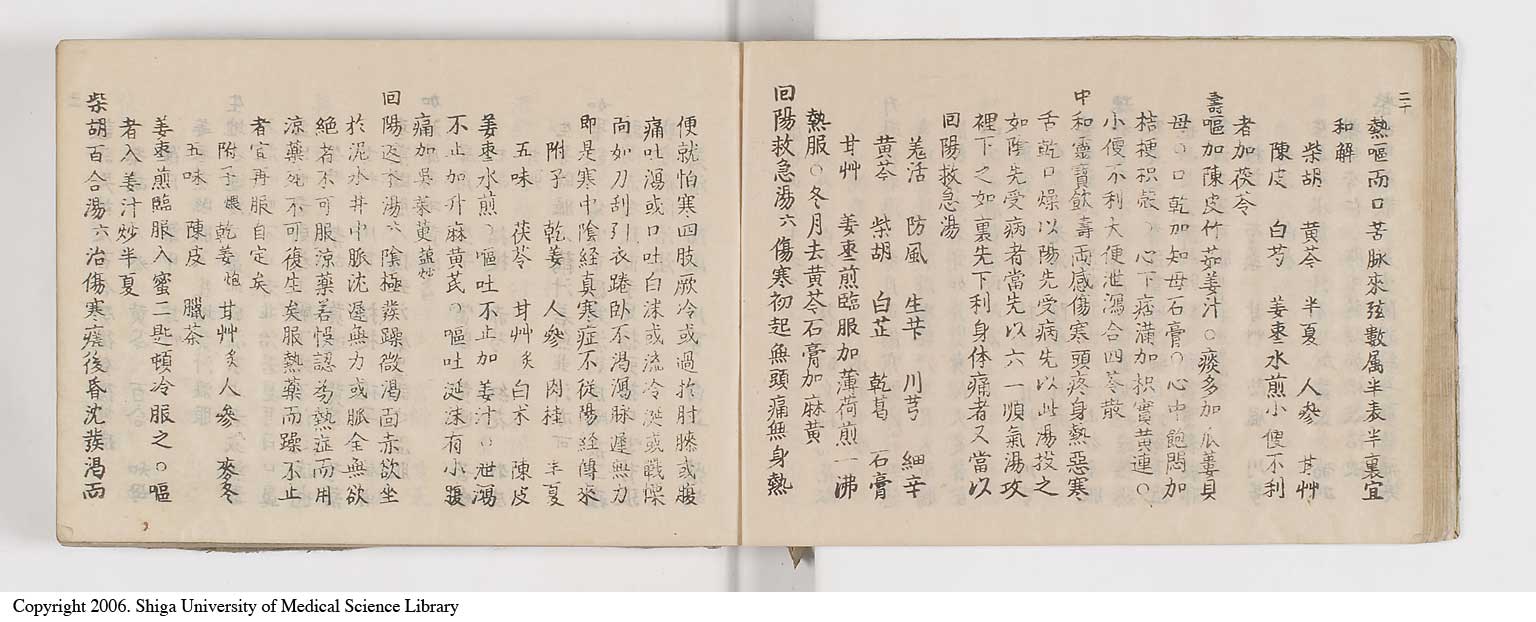 二十
熱嘔而口苦脉來弦數属半表半裏宜
和解
柴胡 黄芩 半夏 人參 甘艸
陳皮 白芍 姜枣水煎小便不利
者加茯苓
壽嘔加陳皮竹茹姜汁○痰多加瓜蔞貝
母○口乾加知母石膏○心中飽悶加
桔梗枳殻○心下痞満加枳實黄連○
小便不利大便泄瀉合四苓散
中和靈寶飲壽両感傷寒頭疼身熱惡寒
舌乾口燥以陽先受病先以此湯投之
如陰先受病者當先以六一順氣湯攻
裡下之如裏先下利身体痛者又當以
回陽救急湯
羗活 防風 生芐 川芎 細辛
黄芩 柴胡 白芷 乾葛 石膏
甘艸 姜枣煎臨服加薄荷煎一沸
熱服○冬月去黄芩石膏加麻黄
回陽救急湯六傷寒初起無頭痛無身熱
便就怕寒四肢厥冷或過於肘膝或腹
痛吐瀉或口吐白沫或流冷涎或戰慄
面如刀刮引衣踡卧不渇瀉脉遲無力
即是寒中陰経真寒症不従陽経傳來
附子 乾姜 人參 肉桂 半夏
五味 茯苓 甘艸炙 白朮 陳皮
姜枣水煎○嘔吐不止加姜汁○泄瀉
不止加升麻黄芪○嘔吐涎沫有小腹
痛加呉茱萸塩炒
回陽返本湯六陰極発躁微渇面赤欲坐
於泥水井中脈沈遲無力或脈全無欲
絶者不可服涼藥若悞認為熱症而用
涼藥死不可復生矣服熱藥而躁不止
者宜再服自定矣
附子煨 乾姜炮 甘艸炙 人參 麥冬
五味 陳皮 臘茶
姜枣煎臨服入蜜二匙頓冷服之○嘔
者入姜汁炒半夏
柴胡百合湯六治傷寒瘥後昏沈発渇而
Copyright 2006. Shiga University of Medical Science Library